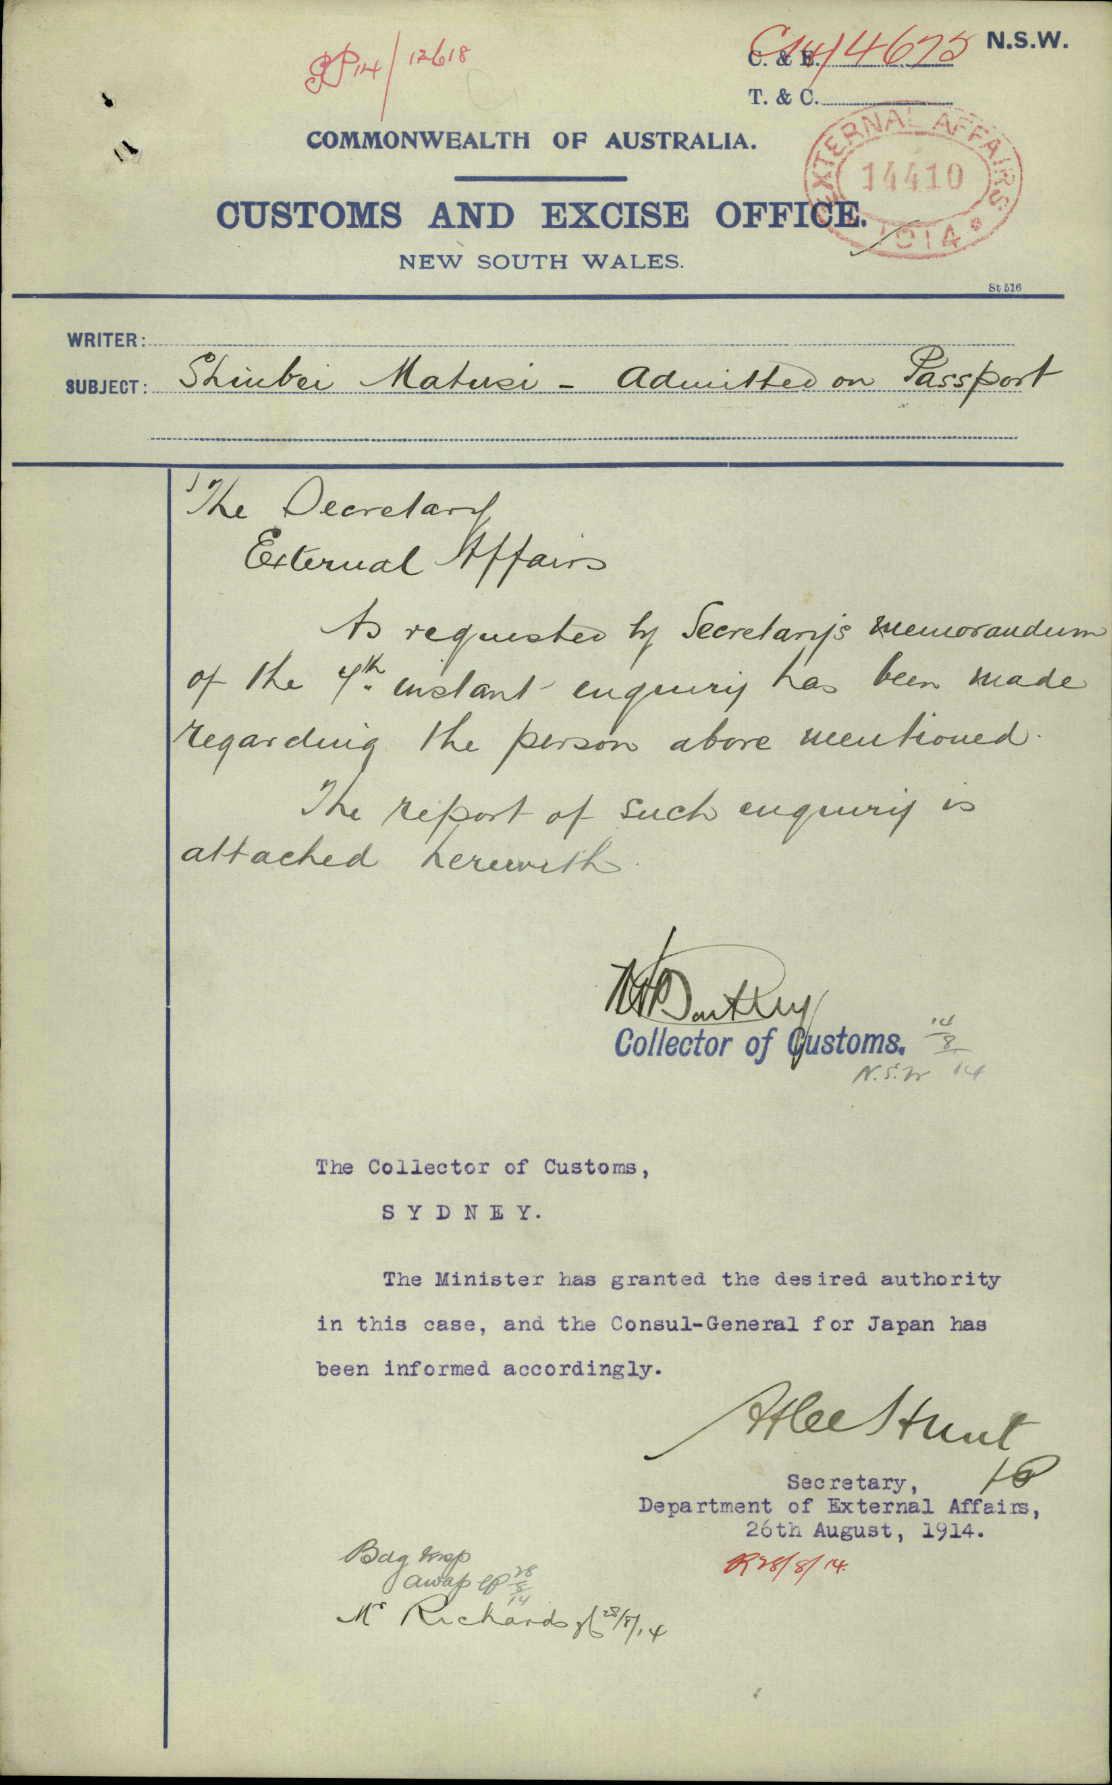 14/12618
C14/4675 N.S.W.
C. & E.
T. & C.
COMMONWEALTH OF AUSTRALIA.
EXTERNAL AFFAIRS
14410
1914
CUSTOMS AND EXCISE OFFICE.
NEW SOUTH WALES.
St 516
WRITER:
SUBJECT: Shinbei Matusi - Admitted on Passport
The Secretary
External Affairs
As requested by Secretary's memorandum
of the 7th instant enquiry has been made
regarding the person above mentioned.
The report of such enquiry is
attached herewith.
Collector of Customs. 14/8/14
N.S.W
The Collector of Customs,
SYDNEY.
The Minister has granted the desired authority
in this case, and the Consul-General for Japan has
been informed accordingly.
Atlee Hunt
Secretary,
Department of External Affairs,
26th August, 1914.
R28/8/14.
28/8/14
Mr Richards 28/8/14